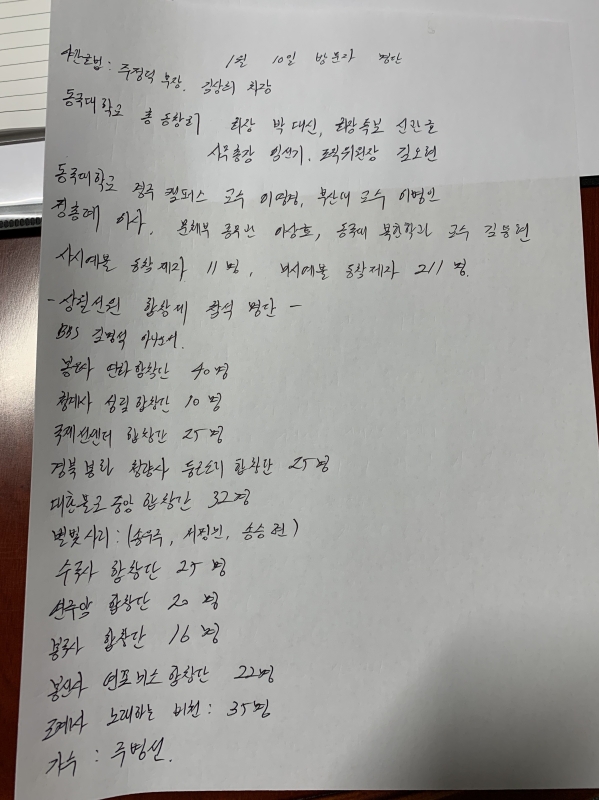 1월 10일 방문자 명단
주정덕 부장. 김상희 차장
동국대학교 총 동창회 회장 박대신, 회장 특보 신관호
사무총장 임선기. 조직위원장 김오현
동국대학교 경주 캠퍼스 교수 이영경, 부산대 교수 이병인
정충래 이사. 문체부 종무관 이상효, 동국대 북한학과 교수 김용현
사시예불 동참제자 11명, 저시예불 동참제자 211명.
-상월선원 합창제 참석 명단-
BBS 김명석 아나운서.
봉은사 연화합창단 40명
청계사 성림합창단 10명
국제선센터 합창단 25명
경북 봉화 청량사 둥근소리 합창단 25명
대한불교 중앙 합창단 32명
별빛사리: (송우주, 서정민, 송승현)
수국사 합창단 25명
연주암 합창단 20명
봉국사 합창단 16명
봉선사 연꽃버스 합창단 22명
조계사 노래하는 비천: 35명
가수: 주병선.